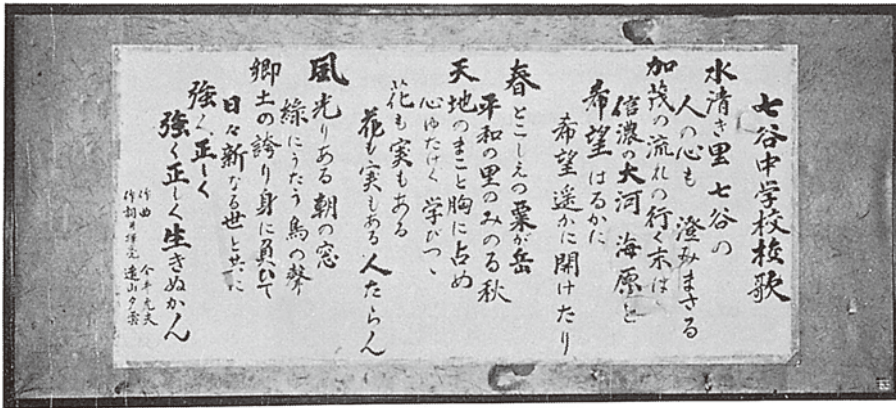 七谷中学校校歌
水清き里七谷の
人の心も 澄みまさる
加茂の流れの行く末は
信濃の大河 海原と
希望はるかに
希望遥かに開けたり
春とこしえの粟が岳
平和の里のみのる秋
天地のまこと胸に占め
心ゆたけく学びつゝ
花も実もある
花も実もある人たらん
風光りある朝の窓
緑にうたう鳥の聲
郷土の誇り身に負ひて
日々新なる世と共に
強く、正しく
強く正しく生きぬかん
作曲
作詞 遠山夕雲